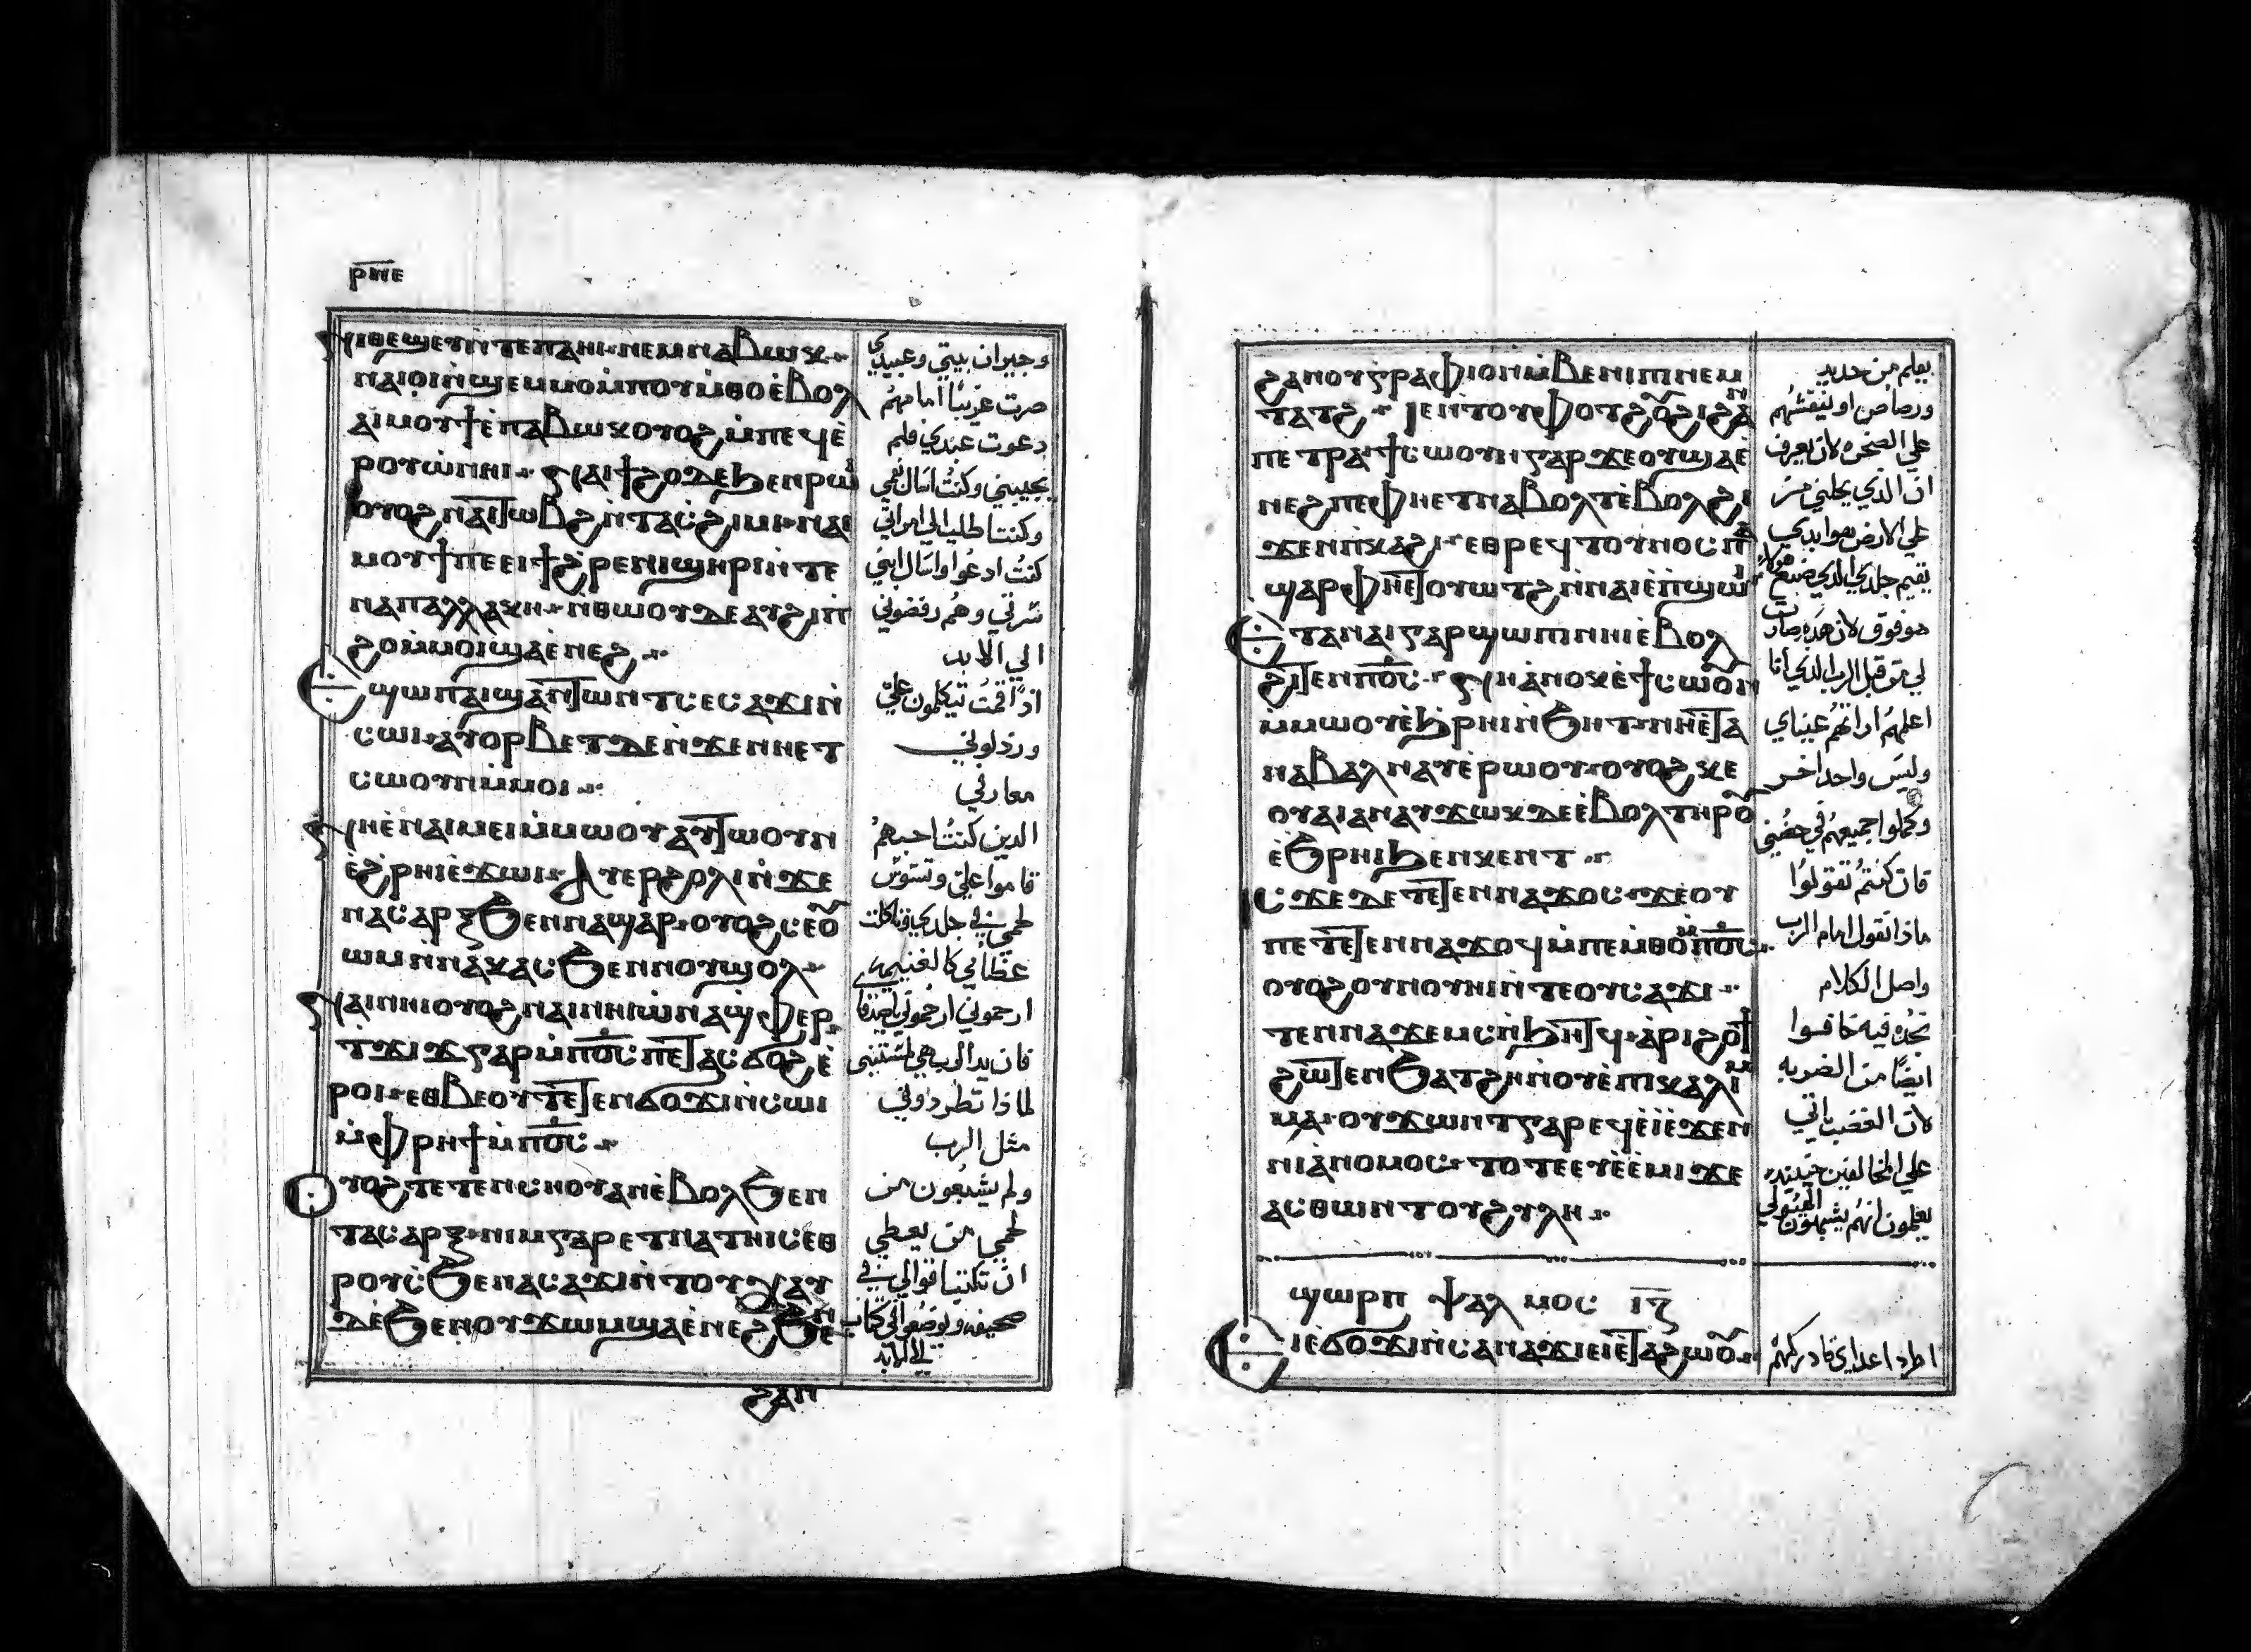 ⲣⲛⲉ
ⲛⲓⲑⲉϣⲉⲩ ⲛⲧⲉ ⲡⲁⲏⲓ ⲛⲉⲙ ⲛⲁⲃⲱⲕ
ⲛⲁⲓⲟⲓ ⲛ̀ϣⲉⲙⲙⲟ ⲙ̀ⲡⲟⲩⲙ̀ⲑⲟ ⲉ̀ⲃⲟⲗ
ⲁⲓⲙⲟⲩϯ ⲉ̀ⲡⲁⲃⲱⲕ ⲟⲩⲟϩ ⲙ̀ⲡⲉϥⲉ̀
ⲣⲟⲩⲱ̀ ⲛⲏⲓ ⲛⲁⲓϯϩⲟ ⲇⲉ ϧⲉⲛ ⲣⲱⲓ
ⲟⲩⲟϩ ⲛⲁⲓⲧⲱⲃϩ ⲛ̀ⲧⲁⲥϩⲓⲙⲓ ⲛⲁⲓ
ⲙⲟⲩϯ ⲡⲉ ⲉⲓϯϩⲟ ⲉⲛⲓϣⲏⲣⲓ ⲛ̀ⲧⲉ
ⲛⲁⲡⲁⲗⲗⲁⲕⲏ ⲛ̀ⲑⲱⲟⲩ ⲇⲉ ⲁⲩϩⲓⲡ
ϩⲟ ⲙ̀ⲙⲟⲓ ϣⲁ ⲉ̀ⲛⲉϩ
ⲉϣⲱⲡ ⲁⲓϣⲁⲛⲧⲱⲛⲧ ⲥⲉⲥⲁϫⲓ ⲛ̀
ⲥⲱⲓ ⲁⲩⲟⲣⲃⲉⲧ ⲇⲉ ⲛ̀ϫⲉ ⲛⲏⲉⲧ
ⲥⲱⲟⲩⲛ ⲙ̀ⲙⲟⲓ
ⲛⲏⲉ̀ⲛⲁⲓⲙⲉⲓ ⲙ̀ⲙⲱⲟⲩ ⲁⲩⲧⲱⲟⲩⲛ
ⲉ̀ϩⲣⲏⲓ ⲉ̀ϫⲱⲓ ⲁⲩⲉⲣϩⲟⲗⲓ ⲛ̀ϫⲉ
ⲛⲁⲥⲁⲣⲝ ϧⲉⲛ ⲡⲁϣⲁⲣ ⲟⲩⲟϩ ⲥⲉⲟⲩ
ⲱⲙ ⲛ̀ⲛⲁⲕⲁⲥ ϧⲉⲛ ⲛⲟⲩϣⲟⲗ
ⲛⲁⲓ ⲛⲏⲓ ⲟⲩⲟϩ ⲛⲁⲓ ⲛⲏⲓ ⲱ̀ ⲛⲁϣⲫⲏⲣ
ⲧϫⲓϫ ⲅⲁⲣ ⲙ̀ⲡ̅ⲟ̅ⲥ̅ ⲡⲉⲧⲁⲥϭⲟϩ ⲉ̀
ⲣⲟⲓ ⲉⲑⲃⲉⲟⲩ ⲧⲉⲧⲉⲛϭⲟϫⲓ ⲛ̀ⲥⲱⲓ
ⲙ̀ⲫⲣⲏϯ ⲙ̀ⲡ̅ⲟ̅ⲥ̅
ⲟⲩⲟϩ ⲧⲉⲧⲉⲛⲥⲏⲟⲩ ⲁⲛ ⲉ̀ⲃⲟⲗ ϧⲉⲛ
ⲧⲁⲥⲁⲣⲝ ⲛⲓⲙ ⲅⲁⲣ ⲉⲧⲛⲁⲧⲏⲓⲥ ⲉⲑ
ⲣⲟⲩⲥϧⲉ ⲛⲁⲥⲁϫⲓ ⲛ̀ⲧⲟⲩⲭⲁⲩ
ⲇⲉ ϧⲉⲛ ⲟⲩϫⲱⲙ ϣⲁ ⲉ̀ⲛⲉϩ ϧⲉⲛ
ϩⲁⲛ
وجيران بيتي وعبيدي
صرت غريبًا امامهم
دعوت عبدي فلم
يجيبني وكنت اسال بفمي
وكنت اطلب الي امراتي
كنت ادعوا واسال ابني
سرتي وهم رفضوني
الي الابد
اذا قمت تيكلمون علي
ورذلوني
معارفي
الدين كنت احبهم
قاموا علي وتسوس
لحمي في جلدي وتاكلت
عظامي كالغنيمه
ارحموني ارحموني يا اصدقا
فان يد الرب هي لمستني
لماذا تطردوني
مثل الرب
ولم يشبعون من
لحمي من يعطي
ان تكتب اقوالي في
صحيفه وتوضع في كتاب
الي الابد
ϩⲁⲛⲟⲩⲅⲣⲁⲫⲓⲟⲛ ⲙ̀ⲃⲉⲛⲓⲡⲓ ⲛⲉⲙ
ⲧⲁⲧϩ ⲓⲉ ⲛⲧⲟⲩⲫⲟⲧϩⲟⲩ ϩⲓϩⲁⲛ
ⲡⲉⲧⲣⲁ ϯⲥⲱⲟⲩⲛ ⲅⲁⲣ ϫⲉ ⲟⲩϣⲁⲉ̀
ⲛⲉϩ ⲡⲉ ⲫⲏⲉⲧⲛⲁⲃⲟⲗⲧ ⲉ̀ⲃⲟⲗ ϩⲓ
ϫⲉⲛ ⲡⲕⲁϩⲓ ⲉⲑⲣⲉϥⲧⲟⲩⲛⲟⲥ ⲡⲁ
ϣⲁⲣ ⲫⲏⲉⲧⲟⲩⲱⲧϩ ⲛ̀ⲛⲁⲓ ⲉ̀ⲡϣⲱⲓ
ⲉⲧⲁ ⲛⲁⲓ ⲅⲁⲣ ϣⲱⲡⲓ ⲛⲏⲓ ⲉ̀ⲃⲟⲗ
ϩⲓⲧⲉⲛ ⲡ̅ⲟ̅ⲥ̅ ⲛⲏ ⲁ̀ⲛⲟⲕ ⲉ̀ϯⲥⲱⲟⲩⲛ
ⲙ̀ⲙⲱⲟⲩ ⲉ̀ϧⲣⲏⲓ ⲛ̀ϧⲏⲧ ⲛⲏⲉ̀ⲧⲁ
ⲛⲁⲃⲁⲗ ⲛⲁⲩ ⲉ̀ⲣⲱⲟⲩ ⲟⲩⲟϩ ⲕⲉ
ⲟⲩⲁⲓ ⲁⲛ ⲁⲩϫⲱⲕ ⲇⲉ ⲉ̀ⲃⲟⲗ ⲧⲏⲣⲟⲩ
ⲉ̀ϧⲣⲏⲓ ϧⲉⲛ ⲕⲉⲛⲧ
ⲓⲥϫⲉ ⲇⲉ ⲧⲉⲧⲉⲛⲛⲁϫⲟⲥ ϫⲉ ⲟⲩ
ⲡⲉⲧⲉⲧⲉⲛⲛⲁϫⲟϥ ⲙ̀ⲡⲉⲙ̀ⲑⲟ ⲙ̀ⲡ̅ⲟ̅ⲥ̅
ⲟⲩⲟϩ ⲟⲩⲛⲟⲩⲛⲓ ⲛ̀ⲧⲉ ⲟⲩⲥⲁϫⲓ
ⲧⲉⲛⲛⲁϫⲉⲙⲥ ⲛ̀ϧⲏⲧϥ ⲁ̀ⲣⲓϩⲟϯ
ϩⲱⲧⲉⲛ ϧⲁⲧϩⲏ ⲛ̀ⲟⲩⲉ̀ⲡⲓⲕⲁⲗⲓⲙ
ⲙⲁ ⲟⲩϫⲱⲛⲧ ⲅⲁⲣ ⲉϥⲉ̀ⲓ̀ ⲉ̀ϫⲉⲛ
ⲛⲓⲁ̀ⲛⲟⲙⲟⲥ ⲧⲟⲧⲉ ⲉⲩⲉ̀ⲉ̀ⲙⲓ ϫⲉ
ⲁⲥⲑⲱⲛ ⲧⲟⲩϩⲩⲗⲏ
ϣⲱⲣⲡ ⲯⲁⲗⲙⲟⲥ ⲓ̅ⲍ̅
ⲉⲓⲉ̀ϭⲟϫⲓ ⲛ̀ⲥⲁ ⲛⲁϫⲁϫⲓ ⲉⲓⲉ̀ⲧⲁϩⲱⲟⲩ
بقلم من حديد
ورصاص او لينقشهم
علي الصخره لان يعرف
ان الذي يحلني من
علي الارض هو ابدي
يقيم جلدي الدي صنع هولاي
هو فوق لان هده صارت
لي من قبل الرب الدي انا
اعلمهم اداتهم عيناي
وليس واحد اخر
وكملوا جميعهم في حضني
فان كنتم تقولوا
ماذا نقول امام الرب
واصل الكلام
نجده فيه خافوا
ايضًا من الضربه
لان الغضب اتي
علي المخالفين حينيده
يعلمون انهم يشبهون الهيولي
اطرد اعداي فادركهم